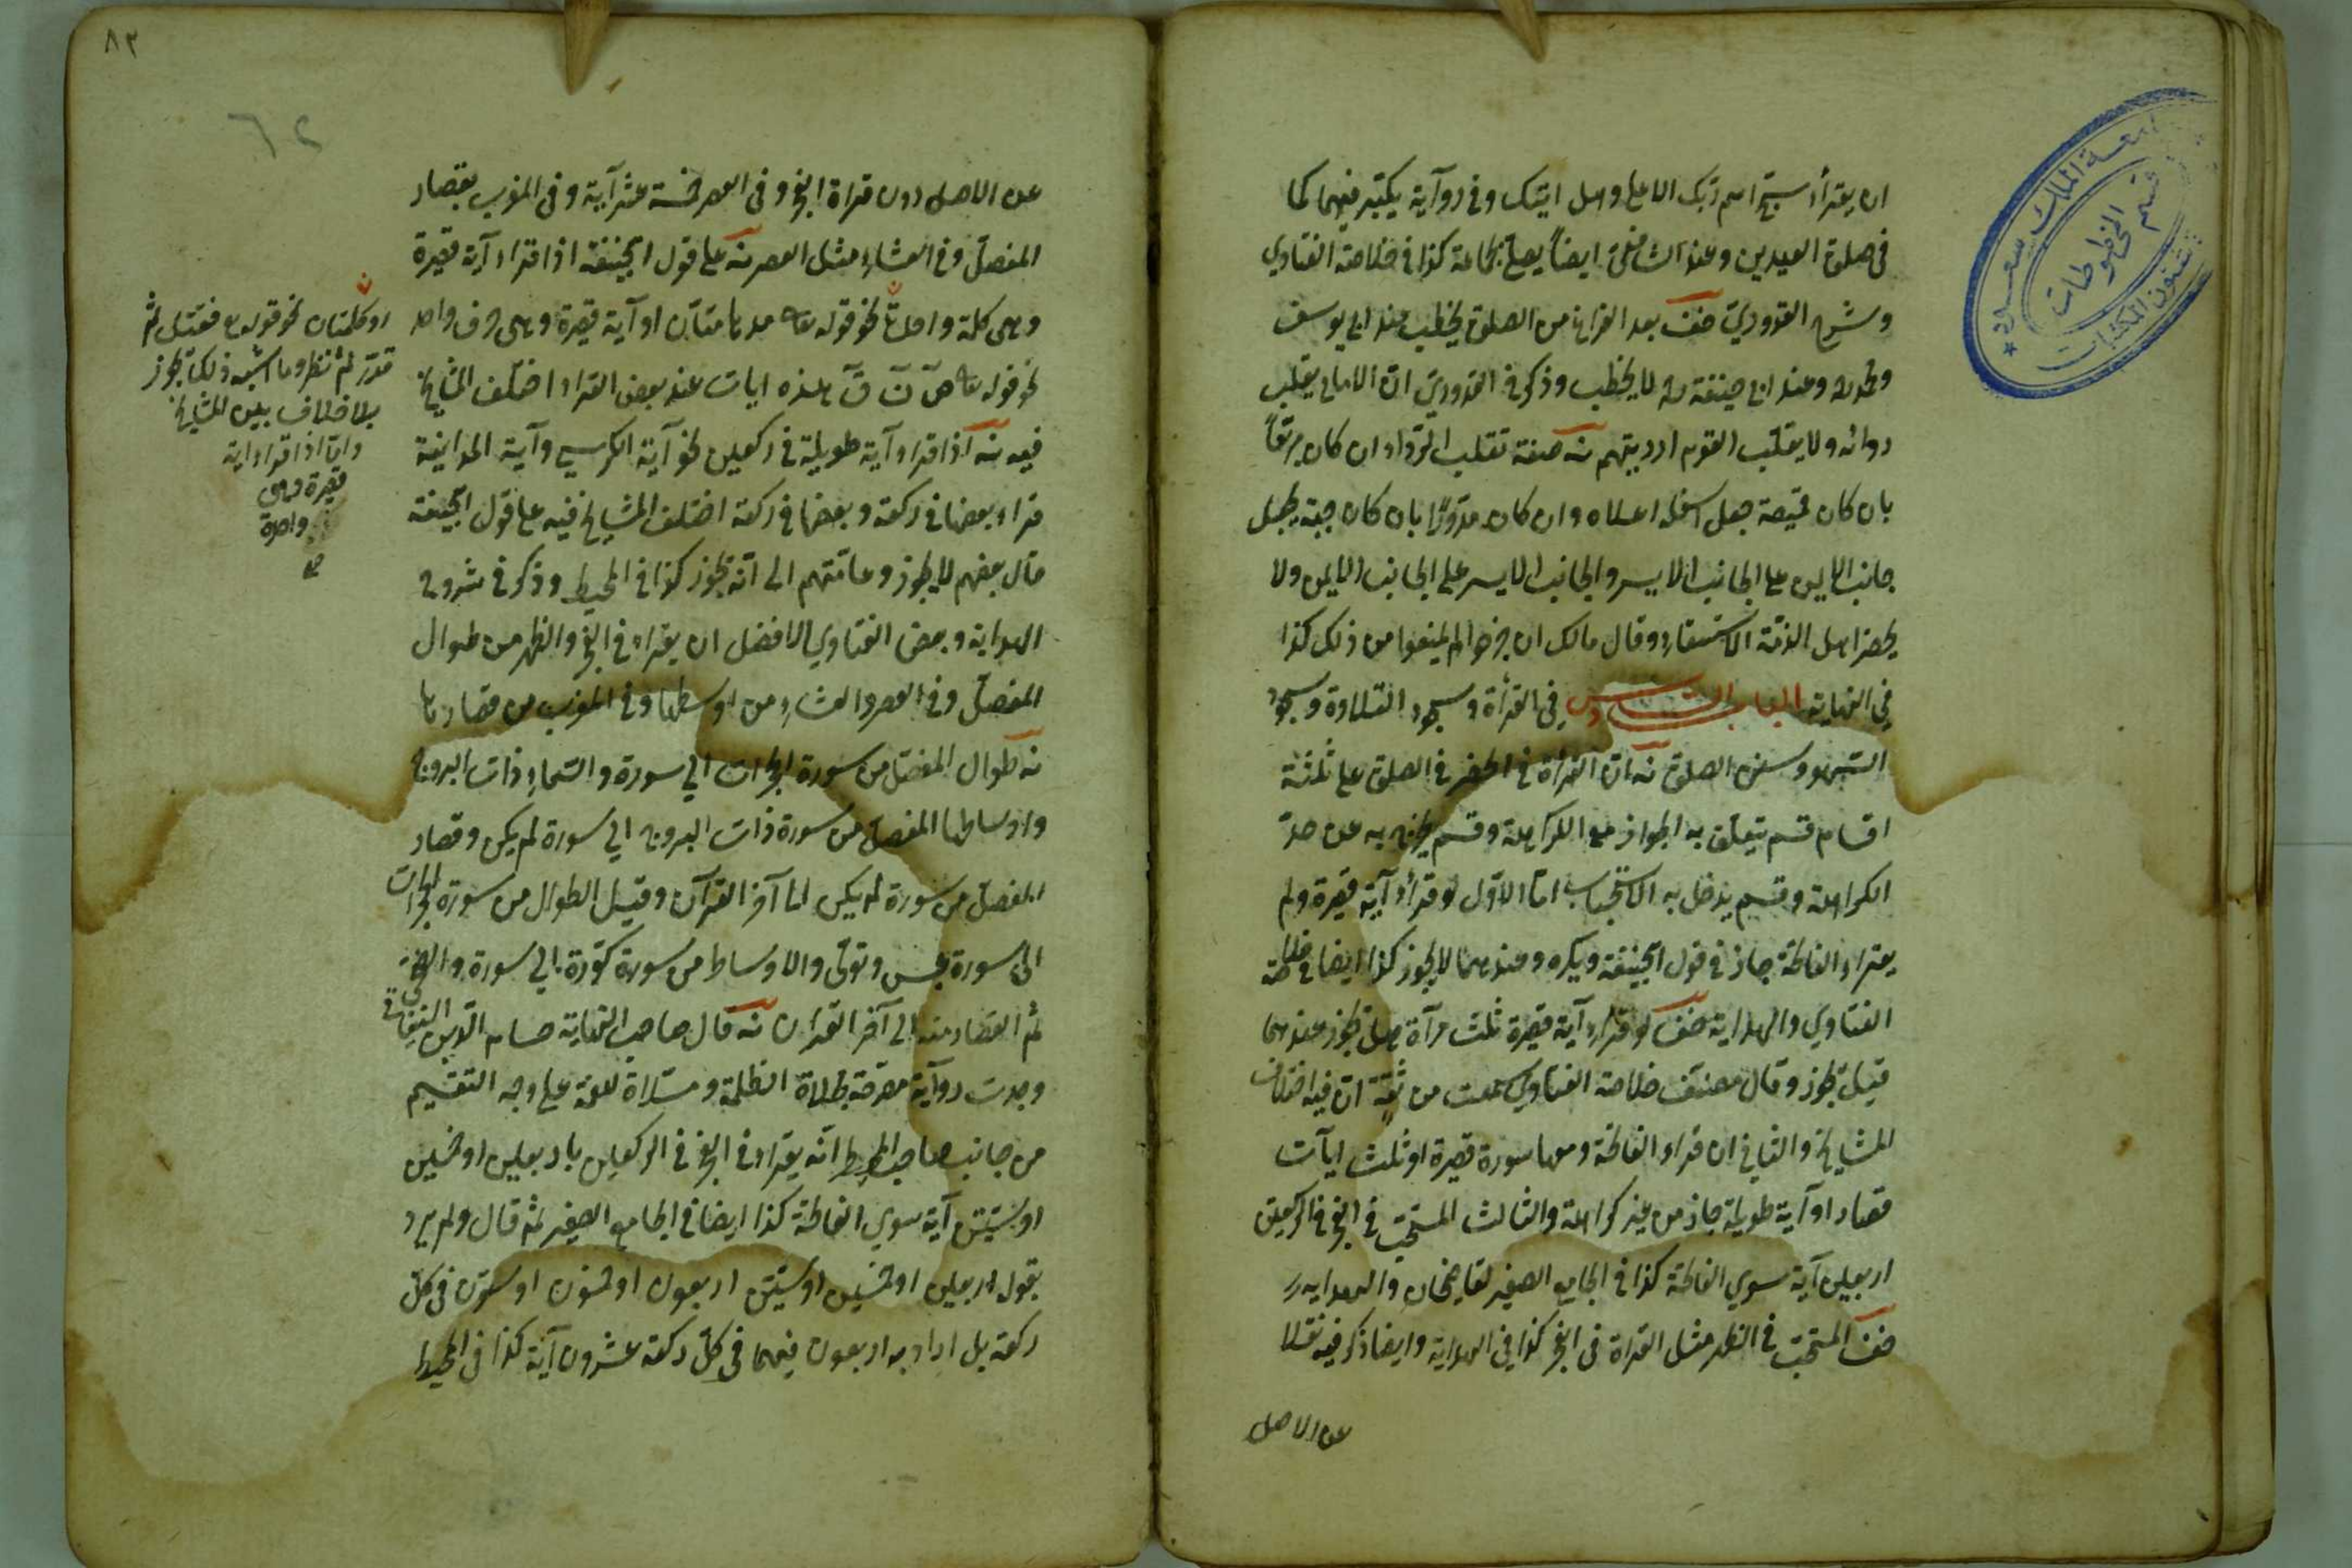 ان يقرأ سبح اسم ربك الاعلى وهل اتيك وفي رواية يكبّر فيهما كما
في صلوة العيدين وعند الشافعي ايضاً يصلى بجماعة كذا في خلاصة الفتاوي
وشرح القدوري صف بعد الفراغ من الصلوة يخطب عند ابي يوسف
ومحمد وعند ابي حنيفة لا يخطب وذكر في القدوري انّ الامام يقلب
ردائه ولا يقلب القوم ارديتهم نه صفة تقلب الرداء ان كان مربّعاً
بان كان خميصة جعل اسفله اعلاه وان كان مدوّرًا بان كان جبة يجعل
جانب الايمن على الجانب الايسر والجانب الايسر على الجانب الايمن ولا
يحضر اهل الذمّة الاستسقاء وقال مالك ان خرجوا لم يمنعوا من ذلك كذا
في النهاية الباب السادس في القرأة وسجود التلاوة وسجود
السهو وسنن الصلوة نه ان القرأة في الحضر في الصلوة على ثلثة
اقسام قسم يتعلّق به الجواز مع الكراهة وقسم يخرج به عن حدّ
الكراهة وقسم يدخل به الاستحباب امّا الاوّل لو قرأ آية قصيرة ولم
يقراء الفاتحة جاز في قول ابيحنيفة ويكره وعندهما لا يجوز كذا ايضا في خلاصة
الفتاوي والهداية صف لو قراء آية قصيرة ثلث مرآة هل يجوز عندهما
قيل يجوز وقال مصنف خلاصة الفتاوي سمعت من ثقة انّ فيه اختلاف
المشايخ والثاني ان قراء الفاتحة ومعها سورة قصيرة او ثلث ايآت
قصار او آية طويلة جاز من غير كراهة والثالث المستحبّ في الفجر في الركعتين
اربعين آية سوي الفاتحة كذا في الجامع الصغير لقاضيخان والهدايه
صف المستحبّ في الظهر مثل القراة في الفجر كذا في الهداية وايضا ذكر فيه نقلا
عن الاصل
٨٣
٦٢
عن الاصل دون قراة الفجر وفي العصر خمسة عشر آية وفي المغرب بقصار
المفصل وفي العشاء مثل العصر نه على قول ابيحنيفة اذا قراء آية قصيرة
وهي كلمة واحدة نحو قوله تعالى مدهامتان او آية قصيرة وهي حرف واحد
نحو قوله تعالى ص ن ق هذه ايات عند بعض القراء اختلف المشايخ
فيه نه اذا قراء آية طويلة في ركعتين نحو آية الكرسي وآية المداينة
قراء بعضها في ركعة وبعضها في ركعة اختلف المشايخ فيه على قول ابيحنيفة
قال بعضهم لا يجوز وعامّتهم الى انّه يجوز كذا في المحيط وذكر في شروح
الهداية وبعض الفتاوي الافضل ان يقراء في الفجر والظهر من طوال
المفصّل وفي العصر والعشاء من اوسطها وفي المغرب من قصارها
نه طوال المفصّل من سورة الحجرات الي سورة والسماء ذات البروج
واوساطها المفصل من سورة ذات البروج الي سورة لم يكن وقصار
المفصل من سورة لم يكن الى آخر القرآن وقيل الطوال من سورة الحجرات
الى سورة عبس وتولّى والاوساط من سورة كوّرة الي سورة والضحى
ثم القصار منه الى آخر القرأن نه قال صاحب النهاية حسام الدين السغناقي
وجدت روآية
من جانب صاحب المحيط انّه يقراء في الفجر في الركعتين باربعين او خمسين
او ستين آية سوي الفاتحة كذا ايضا في الجامع الصغير ثم قال ولم يرد
بقول اربعين او خمسين او ستين اربعون او خمسون او ستون في كلّ
ركعة بل اراد به اربعون فيهما في كلّ ركعة عشرون آية كذا في المحيط
او كلمتان نحو قوله تع فقتل ثم
قدّر ثم نظر وما اشبه ذلك يجوز
بلا خلاف بين المشايخ
وامّا اذا قراء اية
قصيرة وهي
واحدة
جامعة الملك سعود
قسم المخطوطات
شئون المكتبات